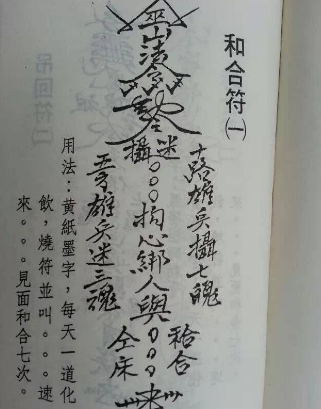 和合符㈠
路雄兵攝七魄
迷攝
○○○拘心綁人與○○○來
雄兵迷三魂
合
仝床
用法：黃紙墨字，每天一道化
飲，燒符並叫。。。速
來。。。見面和合七次。